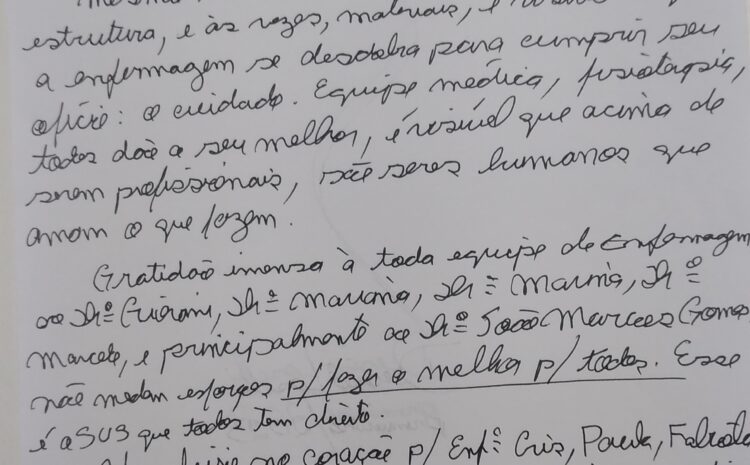 estrutura, e às vezes, materiais, e
a enfermagem se desdobra para cumprir seu
ofício: o cuidado. Equipe médica, fisioterapia,
todos dão o seu melhor, é visível que acima de
serem profissionais, são seres humanos que
amam o que fazem.
Gratidão imensa à toda equipe de Enfermagem
ao Drº Drª Mariana, Drª Marina, Drº
Marcelo, e principalmente ao Drº João Marcos Gomes
não medem esforços p/ fazer o melhor p/ todos. Esse
é o SUS que todos tem direito.
no coração p/ Enfª Cris, Paula,